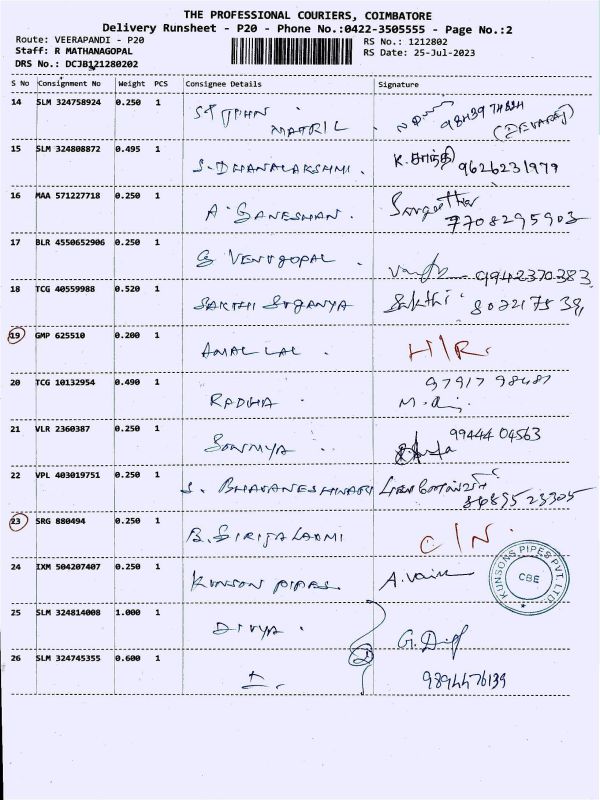 THE PROFESSIONAL COURIERS, COIMBATORE
Delivery Runsheet - P20 - Phone No.:0422-3505555 - Page No.:2
Route: VEERAPANDI - P20
RS No.: 1212802
Staff: R MATHANAGOPAL
RS Date: 25-Jul-2023
DRS No.: DCJB121280202
S No Consignment No Weight PCS Consignee Details Signature
14 SLM 324758924 0.250 1
MATRIL
15 SLM 324808872 0.495 1
S. DHANALAKSHMI. K. சாந்தி 9626231979
16 MAA 571227718 0.250 1
A. GANESHAN. Sangeetha
7708295903
17 BLR 4550652906 0.250 1
G VENUGOPAL. 9942370383
18 TCG 40559988 0.520 1
SAKTHI SOGANYA Sakthi
19 GMP 625510 0.200 1
AMAL LAL. H/R.
20 TCG 10132954 0.490 1 97917 98487
RADHA.
21 VLR 2360387 0.250 1
SOWMYA 99444 04563
22 VPL 403019751 0.250 1
S. BHAVANESHWARI
23 SRG 880494 0.250 1
B. GIRIJA LAXMI C/N.
24 IXM 504207407 0.250 1
KUNSON PIPES
KUNSONS PIPES PVT. LTD.
CBE
25 SLM 324814008 1.000 1
DIVYA.
26 SLM 324745355 0.600 1
9894476139